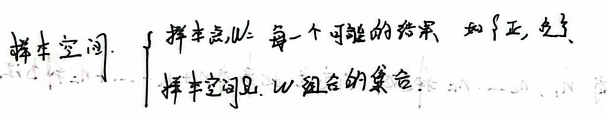 样本空间. { 样本点W= 每一个可能的结果 如{正,反}.
样本空间Ω. W组合的集合.